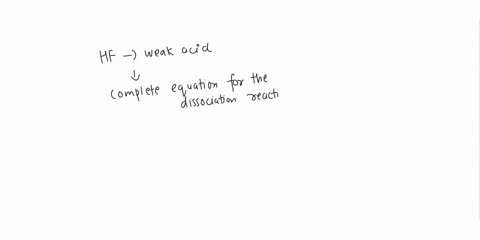 HF → weak acid
↓
complete equation for the
dissociation reacti